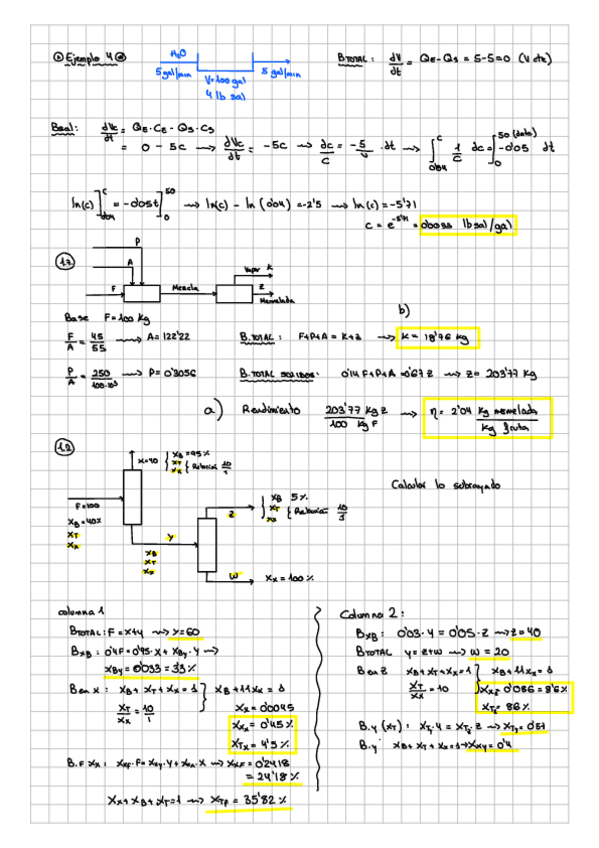 Ejemplo 4
H₂O
5 gal/min V=100 gal 5 gal/min
4 lb sal
BTOTAL: dV/dt = QE-QS = 5-5=0 (V cte)
Bsal: dVc/dt = QE·CE - QS·CS
= 0 - 5c → dVc/dt = -5c → dc/c = -5/V · dt → ∫ 1/c dc = ∫ -0'05 dt
ln(c)] = -0'05t] → ln(c) - ln(0'04) = -2'5 → ln(c) = -5'71
lb sal/gal
17
P
A
F Mezcla Vapor K
Z
Mermelada
Base F=100 kg
b)
F/A = 45/55 → A= 122'22 B.TOTAL: F+P+A = K+Z → K= 18'76 kg
P/A = → P= 0'3056 B.TOTAL SOLIDOS: 0'14 F+P+A =0'67 Z → Z= 203'77 kg
a) Rendimiento 203'77 kg Z / 100 kg F → η= 2'04 kg mermelada / kg fruta
18
X=40 XB=95% XT XX Relación 10/1
Calcular lo subrayado
F=100
XB=40%
XT
XX
Y
XB
XT
XX
Z
XB 5% XT XX Relación:
W XX = 100 %
columna 1
BTOTAL: F=X+Y → Y=60
BXB: 0'4F=0'95·X + XBY·Y →
XBY= 0'033 =
B en X: XB+XT+XX=1 XB+11XX=1
XT/XX = 10/1 XX=0'0045
XXX= 0'45%
XTX= 4'5%
B.F XX: XXF·F= XXY·Y + XXX·X → XXF= 0'2418
= 24'18 %
XX+XB+XT=1 → XTF = 35'82 %
Columna 2:
BXB: 0'03·Y = 0'05·Z → Z=40
BTOTAL Y=Z+W → W=20
B en Z XB+XT+XX=1 XB+11XX=1
XT/XX =10 XXZ= 0'086=8'6%
XTZ= 86%
B.Y (XT): XTY·Y = XTZ·Z →
B.Y XB+XT+XX=1 → XXY=0'4